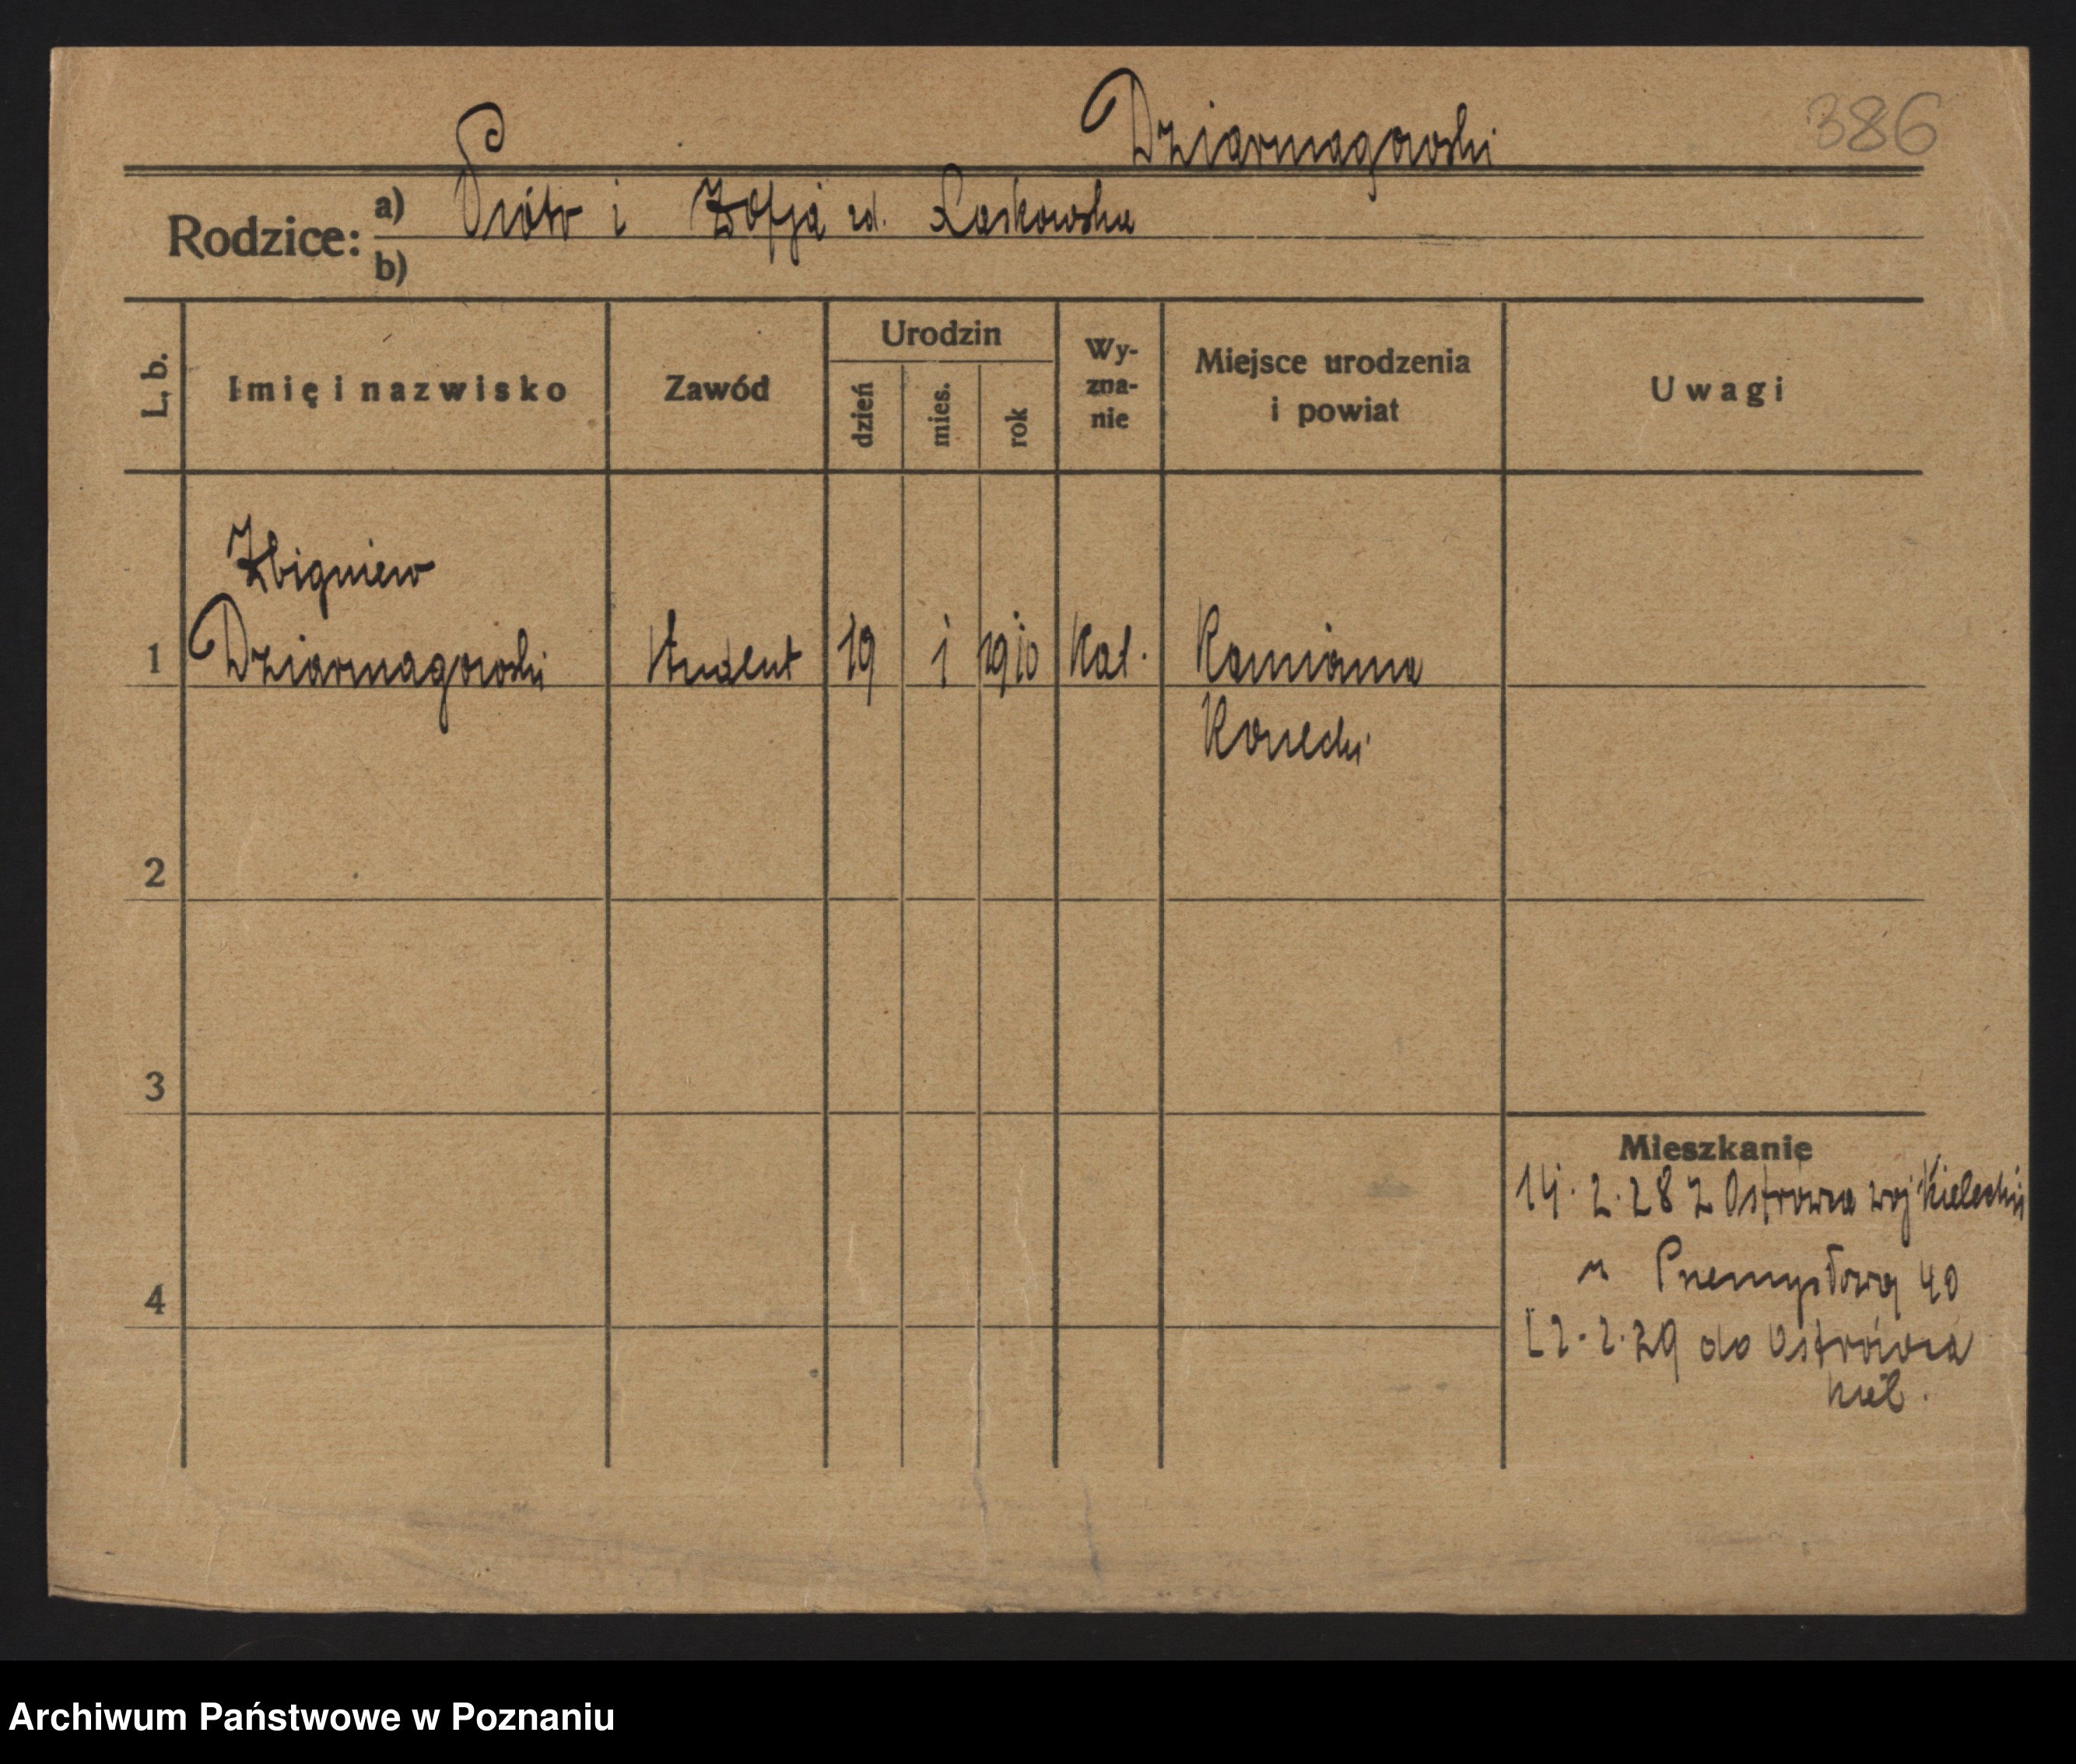 Dziarmagowski 386
Piótr i Zofja zd. Laskowska
Rodzice: a)
b)
L. b. Imię i nazwisko Zawód Urodzin dzień mies. rok Wy-zna-nie Miejsce urodzenia i powiat Uwagi
Zbigniew
1 Dziarmagowski student 19 1 1910 Kat. Kamionna
Konecki
2
3
Mieszkanie
14. 2. 28 z Ostrowca woj Kielechij
Przemysłowa 40
4
2. 29 do Ostrowca
kiel.
Archiwum Państwowe w Poznaniu